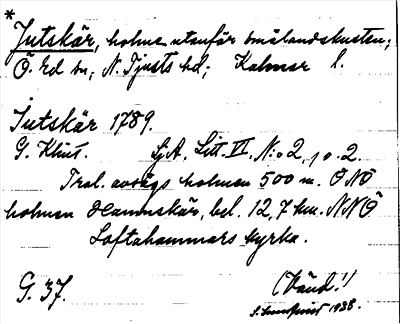 *
Jutskär, holme utanför Smålandskusten;
Ö. Ed sn; N. Tjusts hd; Kalmar l.
Jutskär 1789.
G. Klint. SjA, Litt. VI. N:o 2, p. 2.
Tral. avsågs holmen 500 m. ONO
holmen Hamnskär, bel. 12,7 km. NNÖ
Loftahammars kyrka.
G. 37. (Vänd!)
1938.